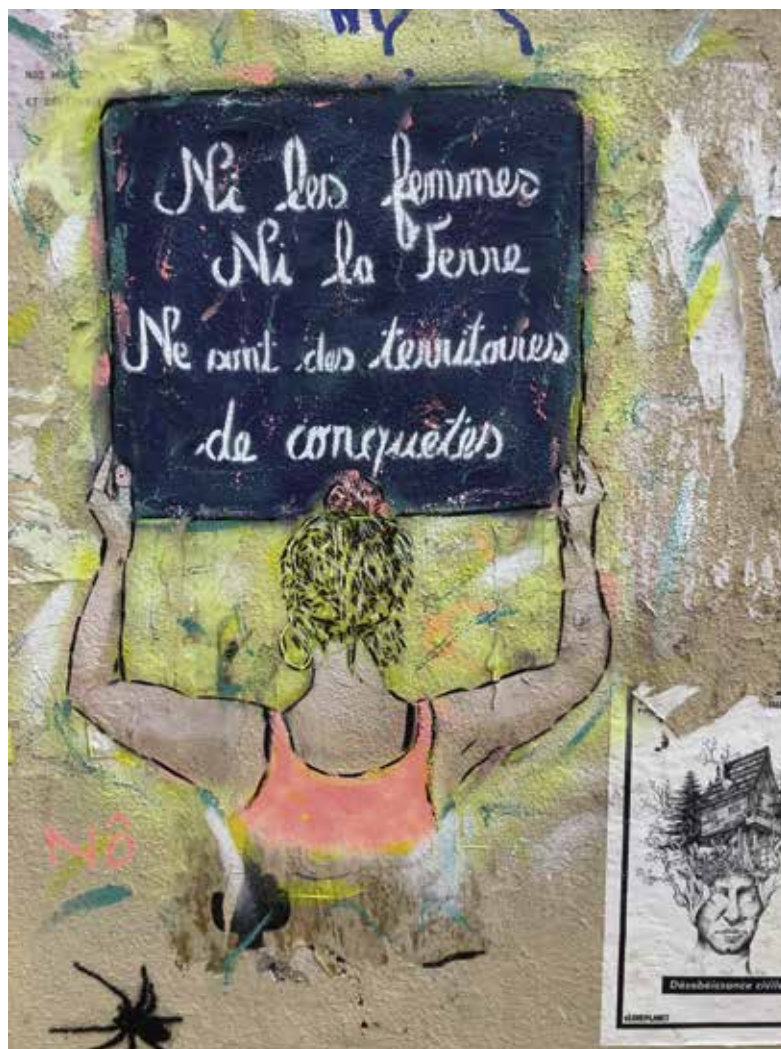 Ni les femmes
Ni la Terre
Ne sont des territoires
de conquêtes
NÔ
Désobéissance civile